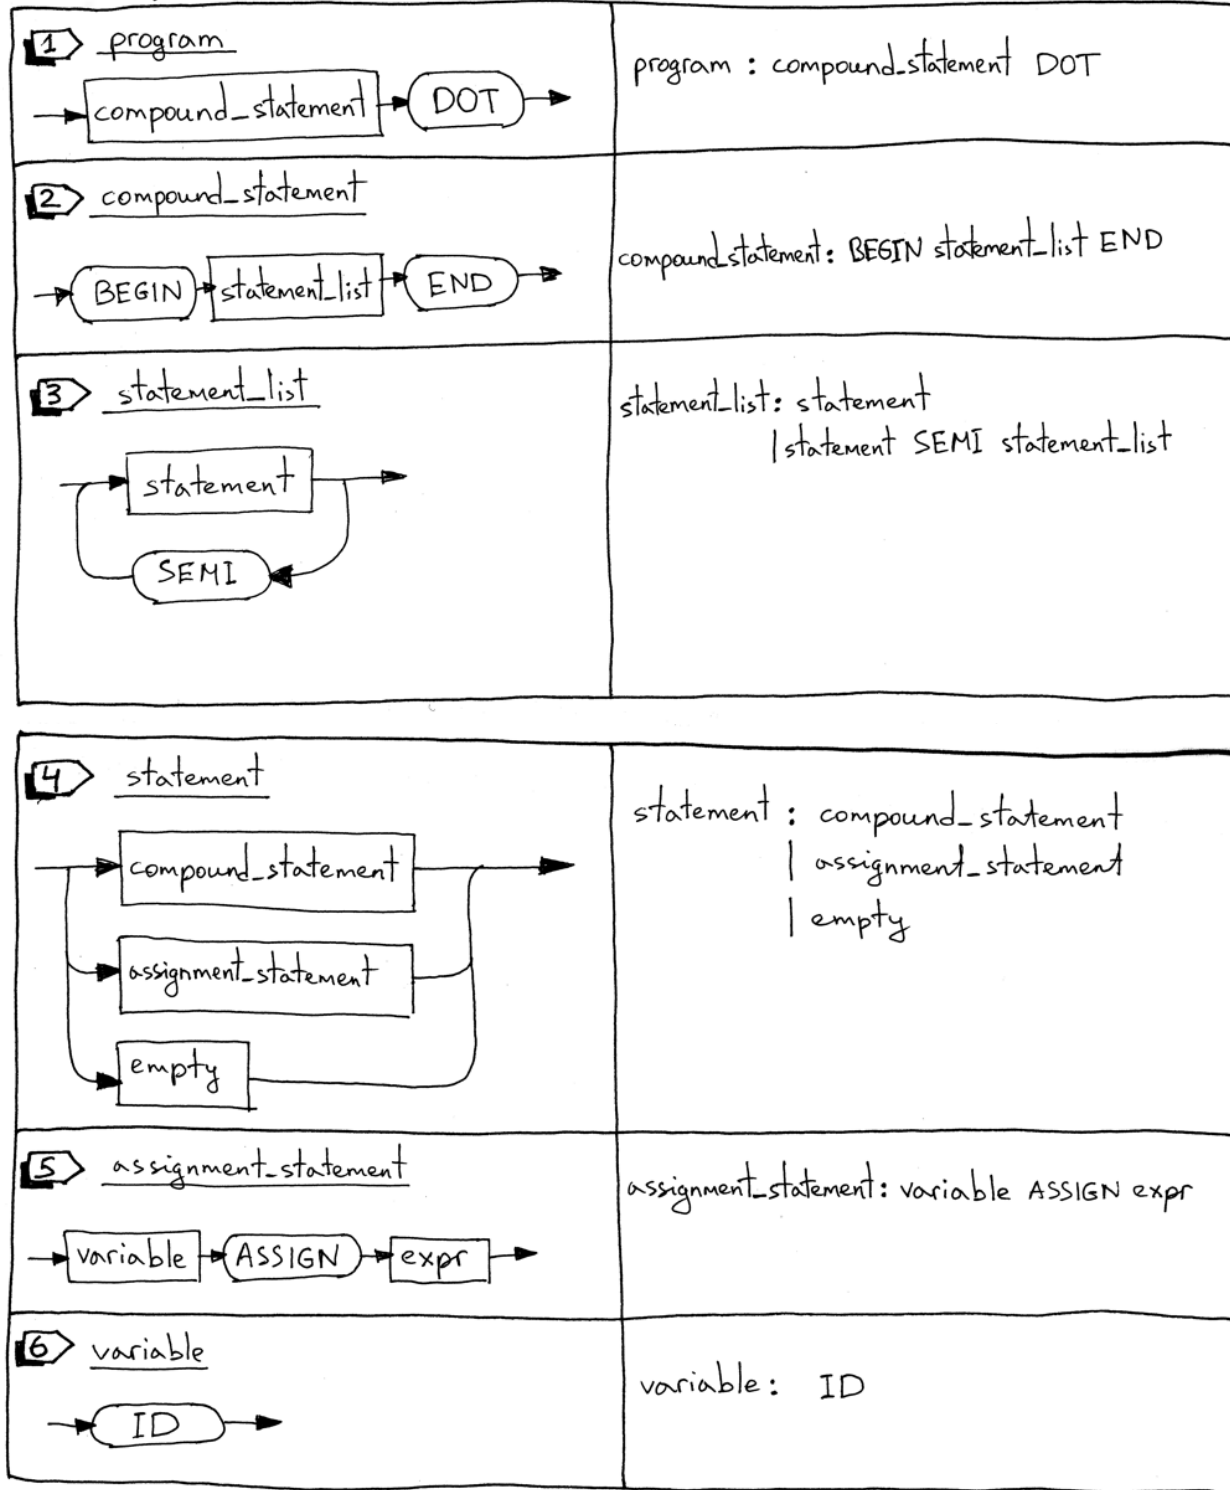 1 program
compound_statement DOT
program : compound_statement DOT
2 compound_statement
BEGIN statement_list END
compound_statement: BEGIN statement_list END
3 statement_list
statement
SEMI
statement_list: statement
| statement SEMI statement_list
4 statement
compound_statement
assignment_statement
empty
statement : compound_statement
| assignment_statement
| empty
5 assignment_statement
variable ASSIGN expr
assignment_statement: variable ASSIGN expr
6 variable
ID
variable: ID